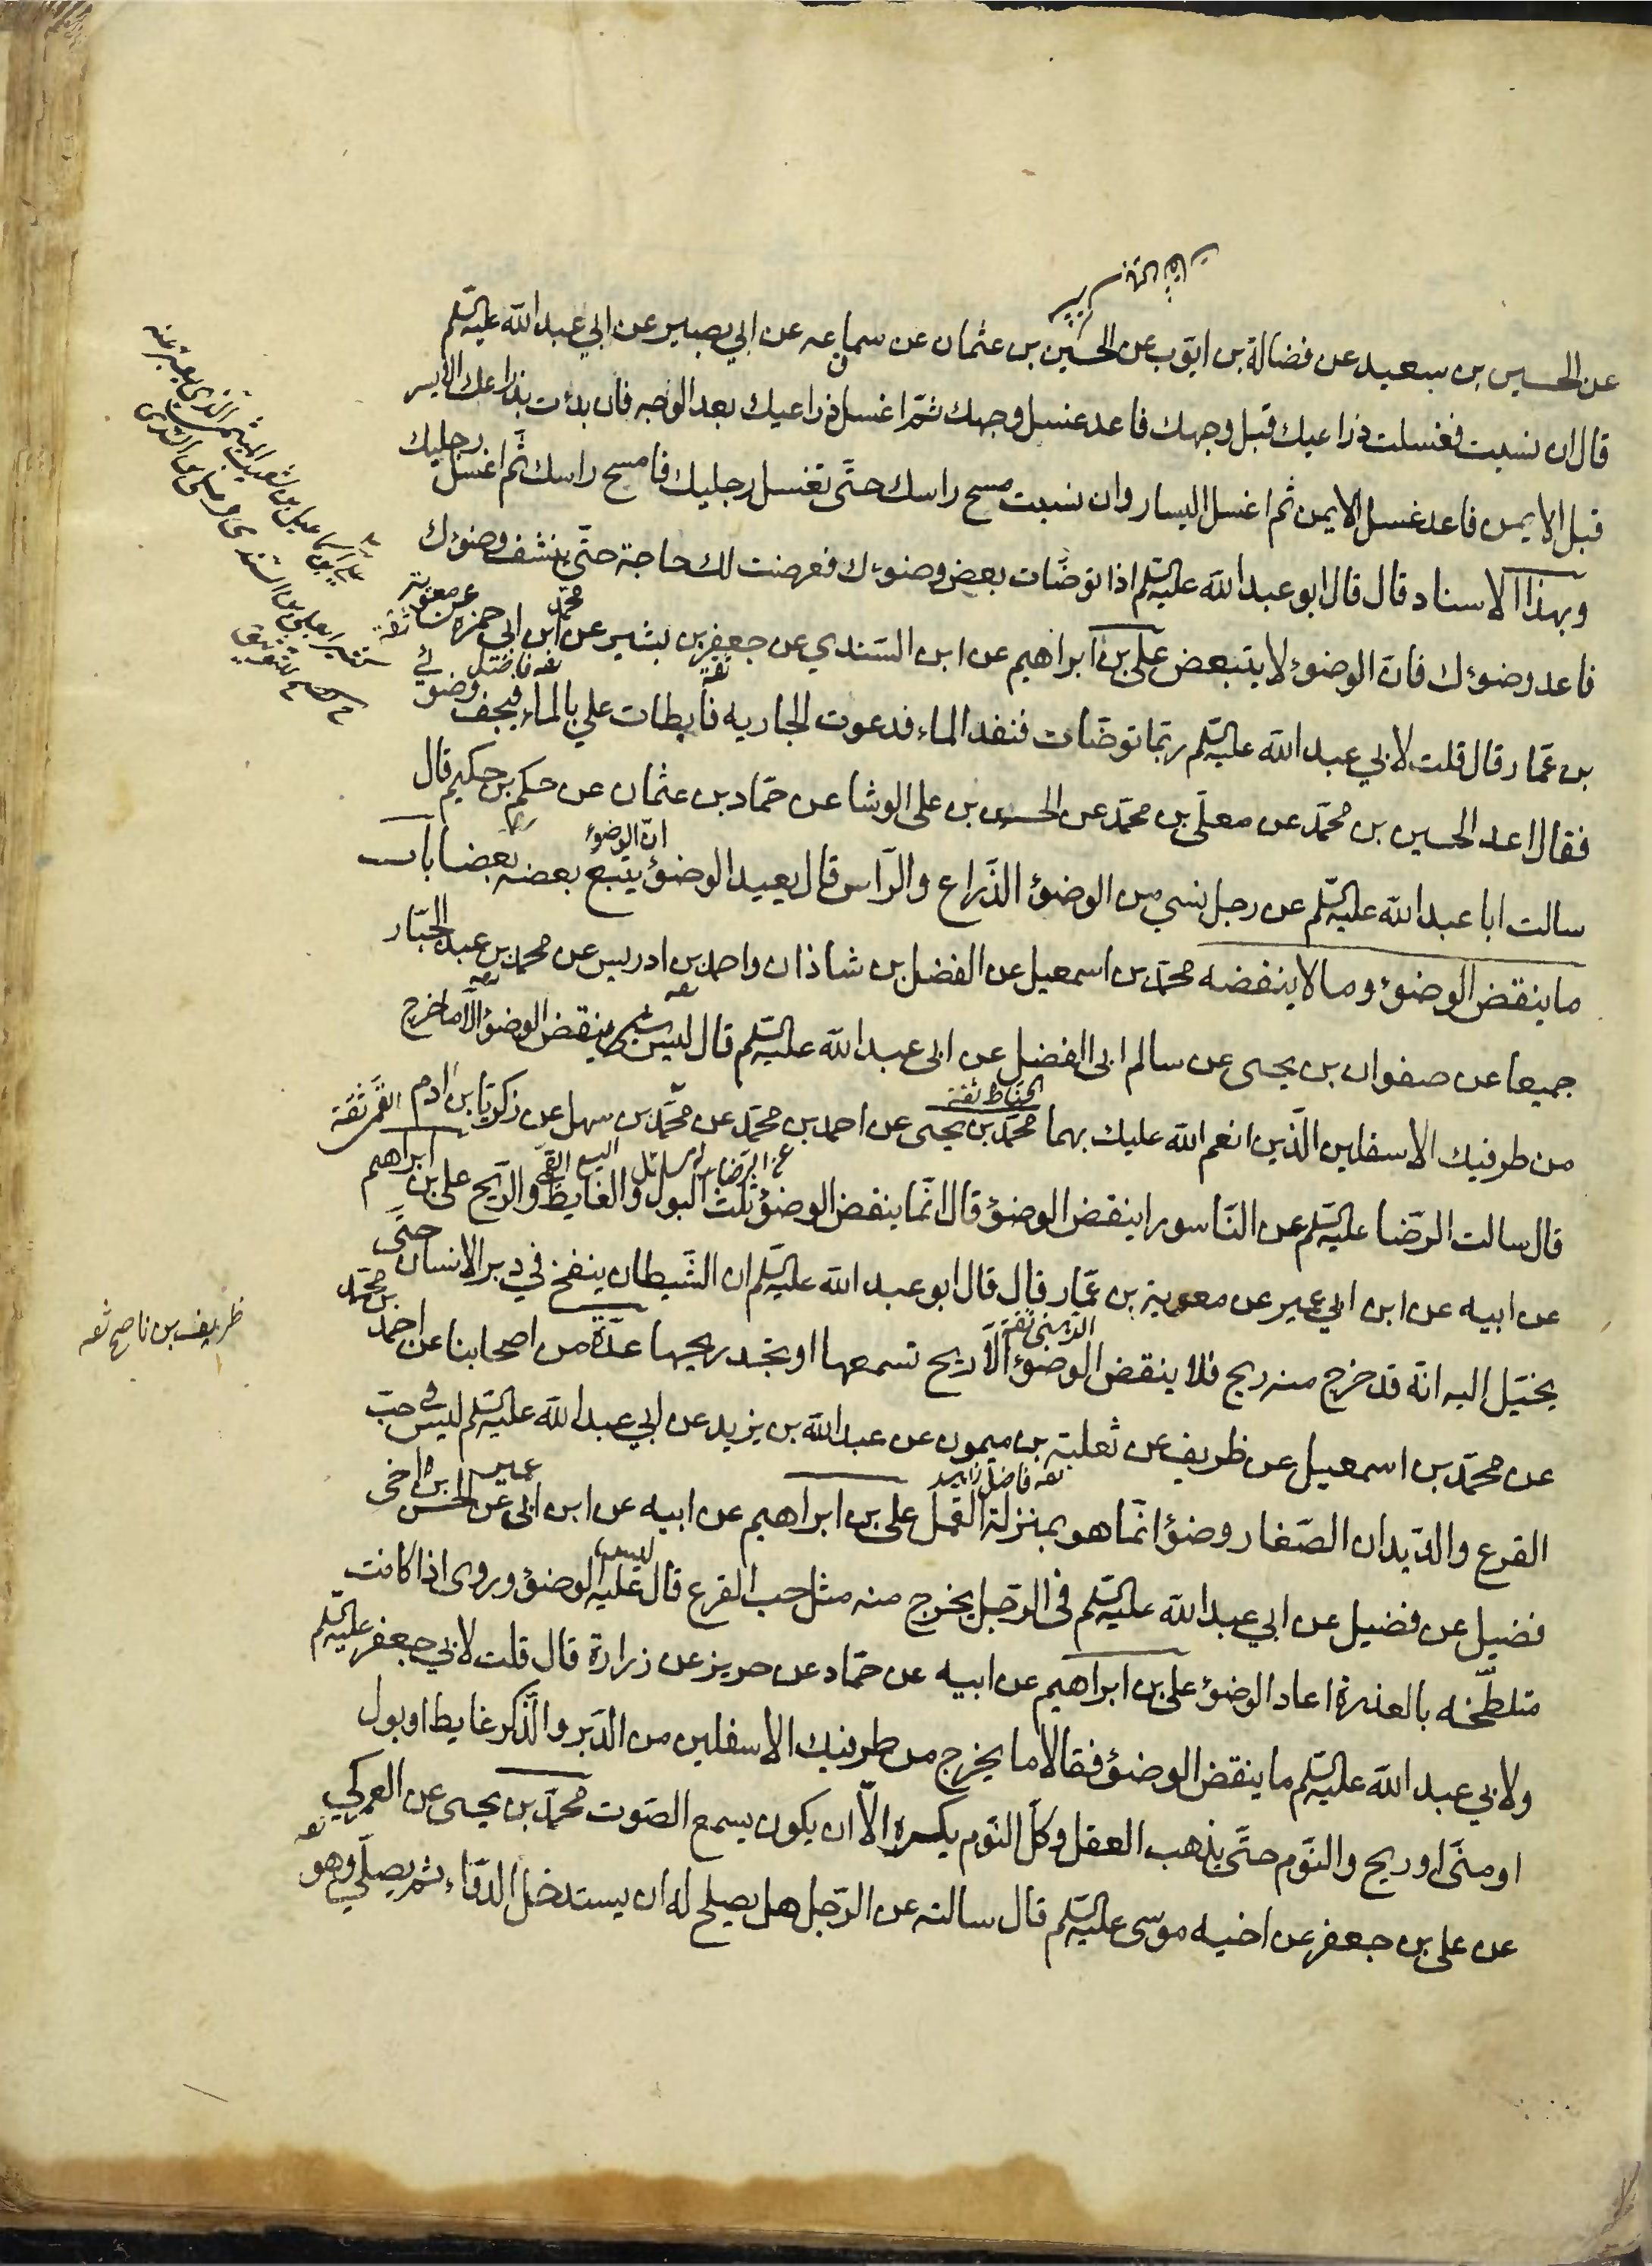 عن الحسين بن سعيد عن فضالة بن ايوب عن الحسين بن عثمان عن سماعه عن ابي بصير عن ابي عبد الله عليه السلم
قال ان نسيت فغسلت ذراعيك قبل وجهك فاعد غسل وجهك ثم اغسل ذراعيك بعد الوجه فان بدءت بذراعك الايسر
قبل الايمن فاعد غسل الايمن ثم اغسل اليسار وان نسيت مسح راسك حتى تغسل رجليك فامسح راسك ثم اغسل رجليك
وبهذا الاسناد قال قال ابو عبد الله عليه السلم اذا توضات بعض وضوءك فعرضت لك حاجة حتى ينشف وضوءك
فاعد وضوءك فان الوضوء لا يتبعض علي بن ابراهيم عن ابن السندي عن جعفر بن بشير عن محمد ابن ابي حمزه عن معوية
بن عمار قال قلت لابي عبد الله عليه السلم ربما توضات فنفد الماء فدعوت الجاريه فابطات علي بالماء فيجف وضوئي
فقال اعد الحسين بن محمد عن معلى بن محمد عن الحسن بن على الوشا عن حماد بن عثمان عن حكم بن حكيم قال
سالت ابا عبد الله عليه السلم عن رجل نسي من الوضوء الذراع والراس قال يعيد الوضوء ان الوضوء يتبع بعضه بعضا باب
ما ينقض الوضوء وما لا ينقضه محمد بن اسمعيل عن الفضل بن شاذان واحمد بن ادريس عن محمد بن عبد الجبار
جميعا عن صفوان بن يحيى عن سالم ابى الفضل عن ابى عبد الله عليه السلم قال ليس شيئ ينقض الوضوء الا ما خرج
الحناط ثقة
من طرفيك الاسفلين الذين انعم الله عليك بهما محمد بن يحيى عن احمد بن محمد عن محمد بن سهل عن زكريا بن ادم القمي ثقة
قال سالت الرضا عليه السلم عن الناسور اينقض الوضوء قال انما ينقض الوضوء ثلث البول والغايط والريح على بن ابراهيم
عن ابيه عن ابن ابي عمير عن معوية بن عمار قال قال ابو عبد الله عليه السلم ان الشيطان ينفخ في دبر الانسان حتى
يخيل اليه انه قد خرج منه ريح فلا ينقض الوضوء الا ريح تسمعها او تجد ريحها عدة من اصحابنا عن احمد بن محمد
ظريف بن ناصح ثقه
عن محمد بن اسمعيل عن ظريف عن ثعلبة بن ميمون عن عبد الله بن يزيد عن ابي عبد الله عليه السلم ليس في حب
القرع والديدان الصغار وضوء انما هو بمنزلة القمل على بن ابراهيم عن ابيه عن ابن ابى عمير عن الحسن بن اخى
فضيل عن فضيل عن ابي عبد الله عليه السلم فى الرجل يخرج منه مثل حب القرع قال ليس عليه الوضوء وروى اذا كانت
متلطخه بالعذرة اعاد الوضوء على بن ابراهيم عن ابيه عن حماد عن حريز عن زرارة قال قلت لابي جعفر عليه السلم
ولابي عبد الله عليه السلم ما ينقض الوضوء فقالا ما يخرج من طرفيك الاسفلين من الدبر والذكر غايط او بول
او منى او ريح والنوم حتى يذهب العقل وكل النوم يكره الا ان يكون يسمع الصوت محمد بن يحيى عن العمركي
عن على بن جعفر عن اخيه موسى عليه السلم قال سالته عن الرجل هل يصلح له ان يستدخل الدواء ثم يصلي وهو